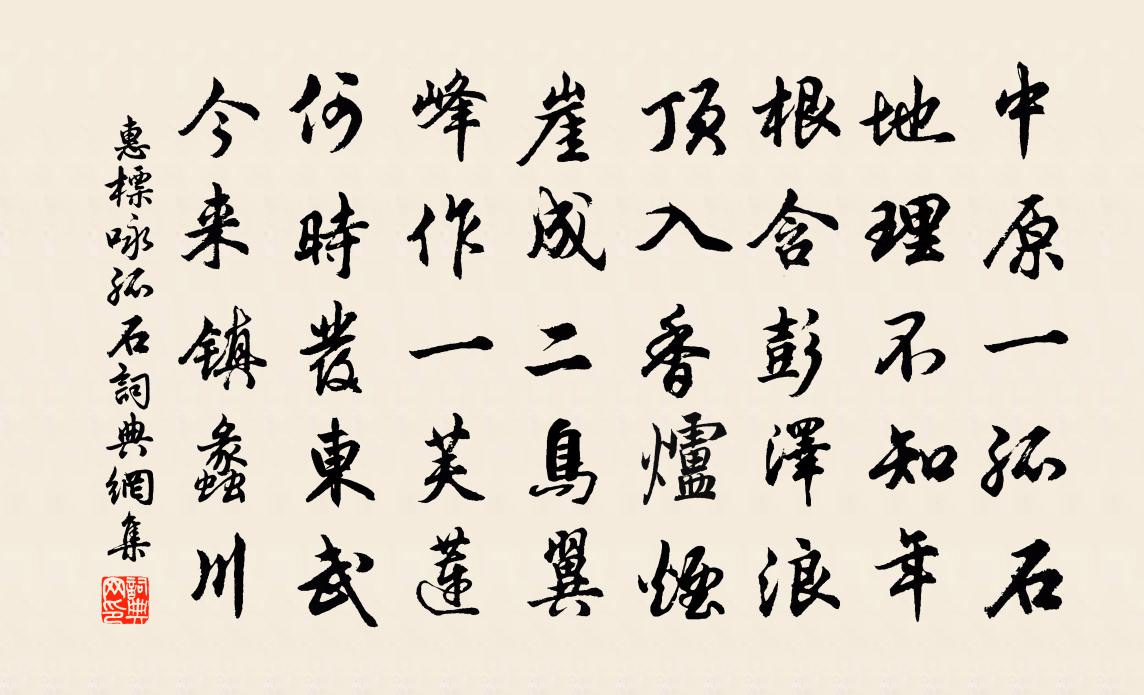 中原一孤石
地理不知年
根含彭澤浪
頂入香爐煙
崖成二鳥翼
峰作一芙蓮
何時發東武
今来鎮蠡川
惠標咏孤石詞典網集
詞典网印